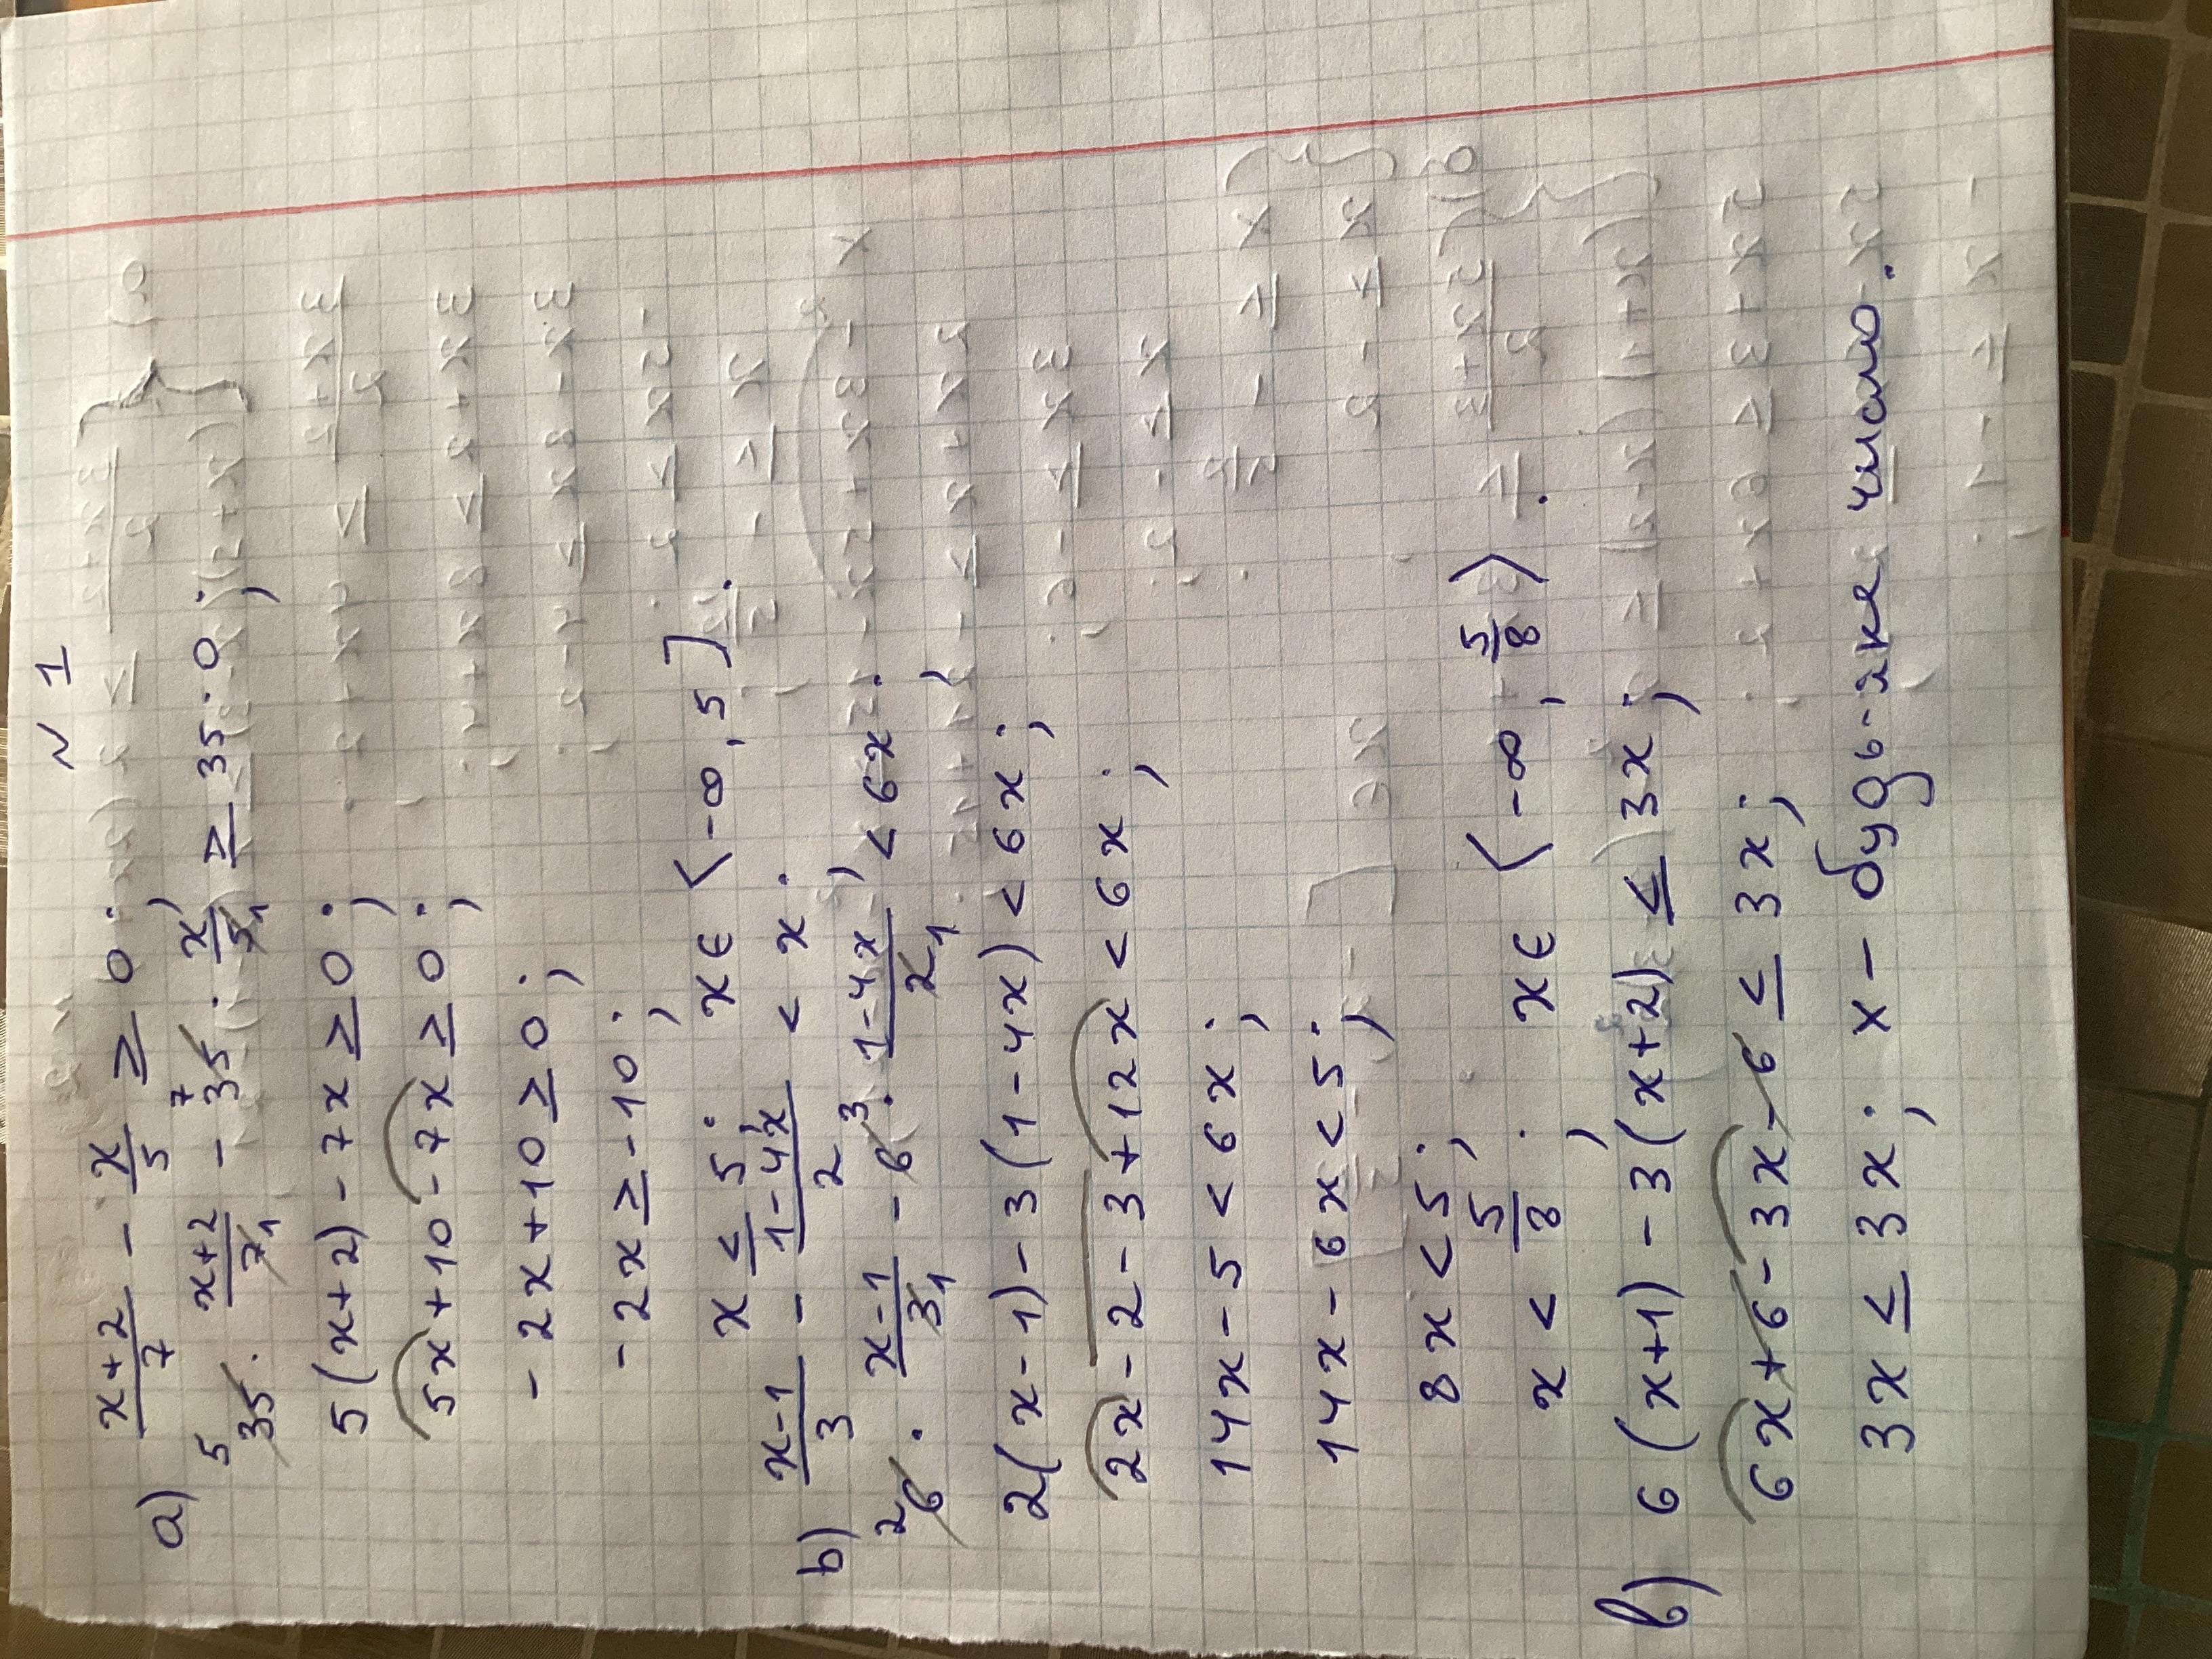 N 1
a) x+2/7 - x/5 ≥ 0;
⁵35 · x+2/7₁ - ⁷35 · x/5₁ ≥ 35 · 0;
5(x+2) - 7x ≥ 0;
5x + 10 - 7x ≥ 0;
-2x + 10 ≥ 0;
-2x ≥ -10;
x ≤ 5. x ∈ (-∞, 5].
b) x-1/3 - 1-4x/2 < x.
²6 · x-1/3₁ - 6³ · 1-4x/2₁ < 6x;
2(x-1) - 3(1-4x) < 6x;
2x - 2 - 3 + 12x < 6x;
14x - 5 < 6x;
14x - 6x < 5;
8x < 5;
x < 5/8; x ∈ (-∞; 5/8).
в) 6(x+1) - 3(x+2) ≤ 3x;
6x + 6 - 3x - 6 ≤ 3x;
3x ≤ 3x; x - будь-яке число.